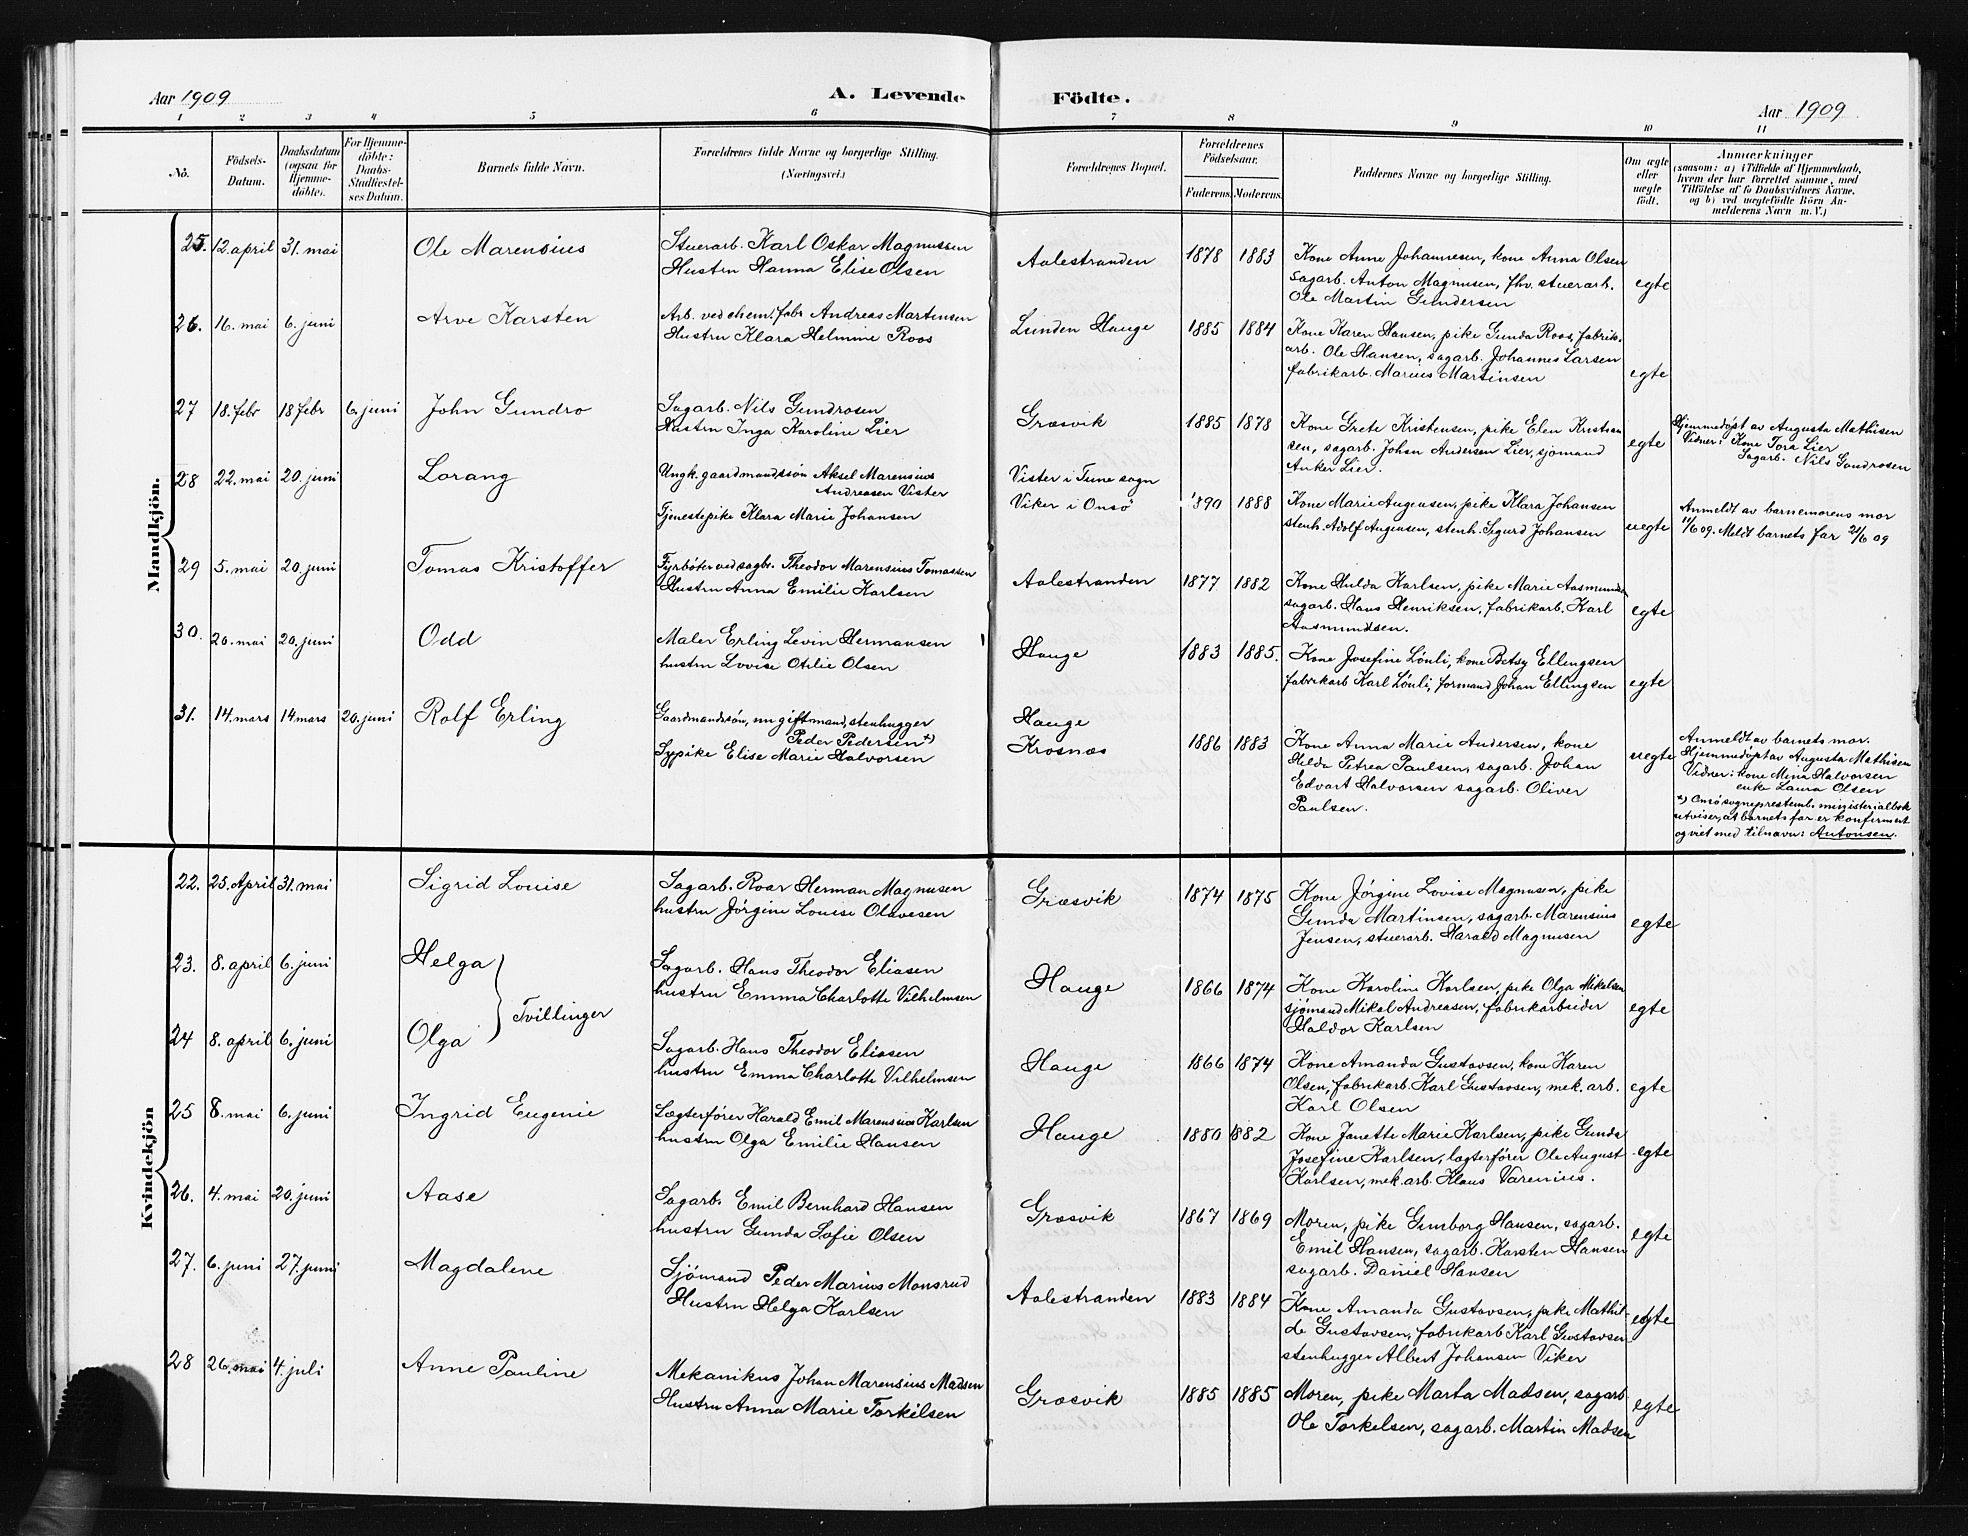 Aar 1909
A. Levende Födte.
Aar 1909
1 2 3 4 5 6 7 8 9 10 11
No.
Födsels-Datum.
Daabsdatum (ogsaa for Hjemme-döbte).
For Hjemme-döbte: Daabs-Stadfæstel-ses Datum.
Barnets fulde Navn.
Forældrenes fulde Navne og borgerlige Stilling. (Næringsvei.)
Forældrenes Bopæl.
Forældrenes Födselsaar.
Faderens. Moderens.
Faddernes Navne og borgerlige Stilling.
Om ægte eller uægte födt.
Anmærkninger
(saasom: a) i Tilfælde af Hjemmedaab,
hvem der har forrettet samme, med
Tilföielse af to Daabsvidners Navne,
og b) ved uægtefödte Börn An-
melderens Navn m. V.)
Mandkjön.
25. 12. april 31. mai Ole Marensius Stuerarb. Karl Oskar Magnussen
Hustru Hanna Elise Olsen
Aalestranden 1878 1883 Kone Anne Johannesen, kone Anna Olsen
sagarb. Anton Magnusen, fhv. stuerarb.
Ole Martin Gundersen
egte
26. 16. mai 6. juni Arve Karsten Arb. ved chem. fabr Andreas Martinsen
Hustru Klara Helmine Roos
Lunden Hauge 1885 1884 Kone Karen Hansen, pike Gunda Roos, fabrik-
arb. Ole Hansen, sagarb. Johannes Larsen
fabrikarb. Marius Martinsen
egte
27 18. febr 18 febr 6. juni John Gundro Sagarb. Nils Gundrosen
Hustru Inga Karoline Lier
Græsvik 1885 1878 Kone Grete Kristensen, pike Elen Kristian
sen, sagarb. Johan Andersen Lier, sjömand
Anker Lier.
egte
Hjemmedøpt av Augusta Mathisen
Vidner: Kone Tora Lier
Sagarb. Nils Gundrosen
28 22. mai 20. juni Lorang Ungk. gaardmandssön Aksel Marensius
Andreasen Vister
Tjenestepike Klara Marie Johansen
Vister i Tune sogn
Viker i Onsö 1890 1888 Kone Marie Augensen, pike Klara Johansen
stenh. Adolf Augensen, stenh. Sigurd Johansen
uegte
Anmeldt av barnemorens mor
11/6 09. Meldt barnets far 21/6 09
29 5. mai 20. juni Tomas Kristoffer Fyrbøter ved sagbr. Theodor Marensius Tomassen
Hustru Anna Emilie Karlsen
Aalestranden 1877 1882 Kone Hulda Karlsen, pike Marie Aasmundsen
sagarb. Hans Henriksen, fabrikarb. Karl
Aasmundsen.
egte
30. 20. mai 20. juni Odd Maler Erling Levin Hermansen
hustru Lovise Otilie Olsen
Hauge 1883 1885. Kone Josefine Lönli, kone Betsy Ellingsen
fabrikarb Karl Lönli, formand Johan Ellingsen
egte
31. 14. mars 14 mars 20. juni Rolf Erling Gaardmandssön, ungift mand, stenhugger
Peder Pedersen x)
Sypike Elise Marie Halvorsen
Hauge
Krosnæs 1886 1883 Kone Anna Marie Andersen, kone
Helda Petrea Paulsen, sagarb. Johan
Edvart Halvorsen sagarb. Oliver
Paulsen.
uegte
Anmeldt av barnets mor.
Hjemmedøpt av Augusta Mathisen
Vidner: kone Mina Halvorsen
enke Laura Olsen
x) Onsö sogneprestemb. ministerialbok
utviser, at barnets far er konfirmert
og viet med tilnavn: Antonsen.
Kvindekjön
22. 25. April 31. mai Sigrid Louise Sagarb. Roar Herman Magnusen
hustru Jörgine Louise Olavesen
Græsvik 1874 1875 Kone Jörgine Lovise Magnusen, pike
Gunda Martinsen, sagarb. Marensius
Jensen, stuerarb. Harald Magnusen
egte
23. 8. april 6. juni Helga Sagarb. Hans Theodor Eliasen
hustru Emma Charlotte Vilhelmsen
Hauge 1866 1874 Kone Karoline Karlsen, pike Olga Mikalsen
sjömand Mikal Andreasen, fabrikarbeider
Haldor Karlsen
egte
Tvillinger
24 8. april 6. juni Olga Sagarb. Hans Theodor Eliasen
hustru Emma Charlotte Vilhelmsen
Hauge 1866 1874 Kone Amanda Gustavsen, kone Karen
Olsen, fabrikarb. Karl Gustavsen, mek. arb.
Karl Olsen
egte
25 8. mai 6. juni Ingrid Eugenie Lægterfører Harald Emil Marensius Karlsen
hustru Olga Emilie Hansen
Hauge 1880 1882 Kone Janette Marie Karlsen, pike Gunda
Josefine Karlsen, lægterfører Ole August
Karlsen, mek. arb. Klaus Varenius.
egte
26. 4. mai 20. juni Aase Sagarb. Emil Bernhard Hansen
hustru Gunda Sofie Olsen
Græsvik 1867 1869 Moren, pike Gunborg Hansen, sagarb.
Emil Hansen, sagarb. Karsten Hansen
sagarb. Daniel Hansen
egte
27. 6. juni 27. juni Magdalene Sjömand Peder Marius Monsrud
Hustru Helga Karlsen
Aalestranden 1883 1884 Kone Amanda Gustavsen, pike Mathil-
de Gustavsen, fabrikarb Karl Gustavsen
stenhugger Albert Johansen Viker
egte
28 26. mai 4. juli Anne Pauline Mekanikus Johan Marensius Madsen
Hustru Anna Marie Torkilsen
Græsvik 1885 1885 Moren, pike Marta Madsen, sagarb
Ole Torkelsen, sagarb. Martin Madsen
egte